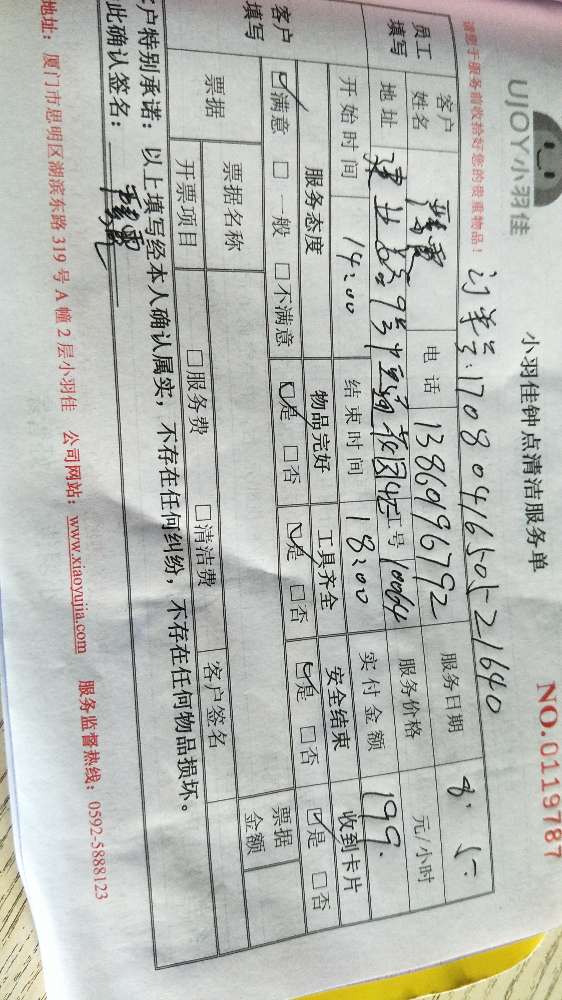 UJOY小羽佳
小羽佳钟点清洁服务单
NO.0119787
请您于服务前收拾好您的贵重物品！
订单号:17080416505521640
员工填写
客户姓名
电话 13860196792
服务日期 8.5
地址
工号 10064
服务价格 元/小时
开始时间 14:00
结束时间 18:00
实付金额 199.
客户填写
服务态度 物品完好 工具齐全 安全结束 收到卡片
☑满意 □一般 □不满意 ☑是 □否 ☑是 □否 ☑是 □否 ☑是 □否
票据 票据名称 票据金额
开票项目 □服务费 □清洁费 客户签名
户特别承诺：以上填写经本人确认属实，不存在任何纠纷，不存在任何物品损坏。
此确认签名：
地址：厦门市思明区湖滨东路319号A幢2层小羽佳 公司网站：www.xiaoyujia.com 服务监督热线：0592-5888123